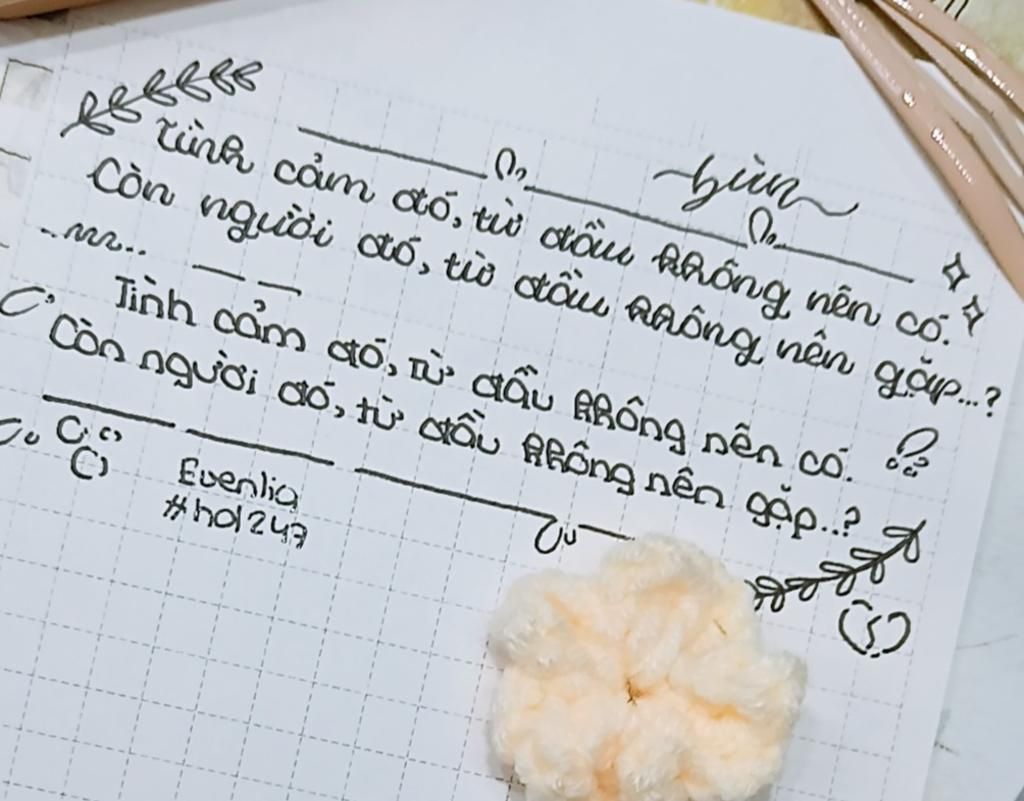 bùn
Tình cảm đó, từ đầu không nên có.
Còn người đó, từ đầu không nên gặp...?
Tình cảm đó, từ đầu không nên có.
Còn người đó, từ đầu không nên gặp..?
Evenlia
#hol247